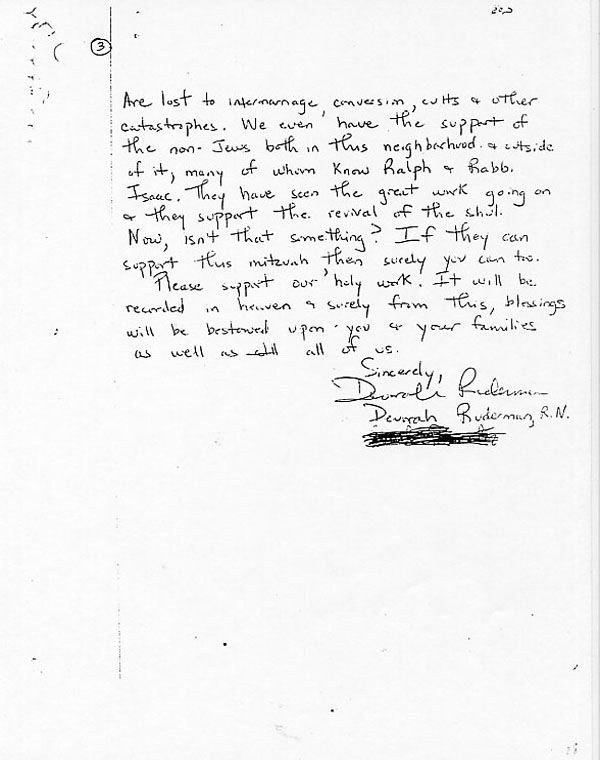 3
Are lost to intermarriage, conversion, cults & other
catastrophes. We even have the support of
the non-Jews both in this neighborhood & outside
of it, many of whom know Ralph & Rabb.
Isaac. They have seen the great work going on
& they support the revival of the shul.
Now, isn't that something? If they can
support this mitzvah then surely you can too.
Please support our holy work. It will be
recorded in heaven & surely from this, blessings
will be bestowed upon you & your families
as well as all of us.
Sincerely,
Devorah Ruderman
Devorah Ruderman, R.N.